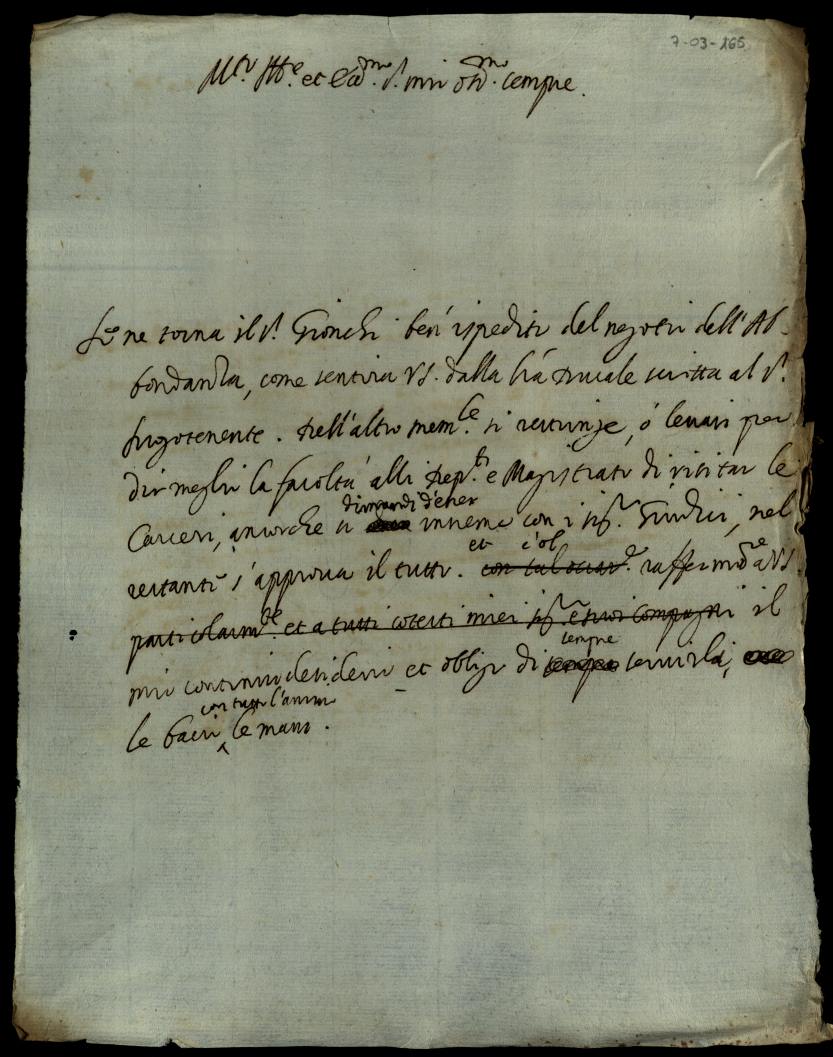 7-03-165
et Ecc.mo S.r mio sempre.
Se ne torna il S.r Gionchi ben ispedito del negotio dell'Ab-
bondanza, come sentirà VS. dalla scritta al S.r
luogotenente. Nell'altro mem.le si restringe, ó levari per
dir meglio la facoltà alli Dep.ti e Magistrato di visitar le
dimandi d'esser
Carceri, ancorche si insieme con i Sig.ri Giudici, nel
et
restante s'approva il tutto. raffermo a VS.
particolarm.te et a tutti cotesti miei Sig.ri e suoi Compagni il
sempre
mio continuo desiderio et obligo di servirla,
con tutto l'animo
le bacio le mani.